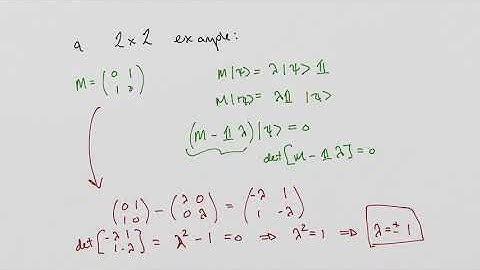 a 2x2 example:
M = (0 1 1 0)
M|ψ> = λ|ψ> 𝟙
M|ψ> = λ𝟙 |ψ>
(M - 𝟙 λ)|ψ> = 0
det[M - 𝟙 λ] = 0
(0 1 1 0) - (λ 0 0 λ) = (-λ 1 1 -λ)
det[-λ 1 1 -λ] = λ² - 1 = 0 ⇒ λ² = 1 ⇒ λ = ± 1